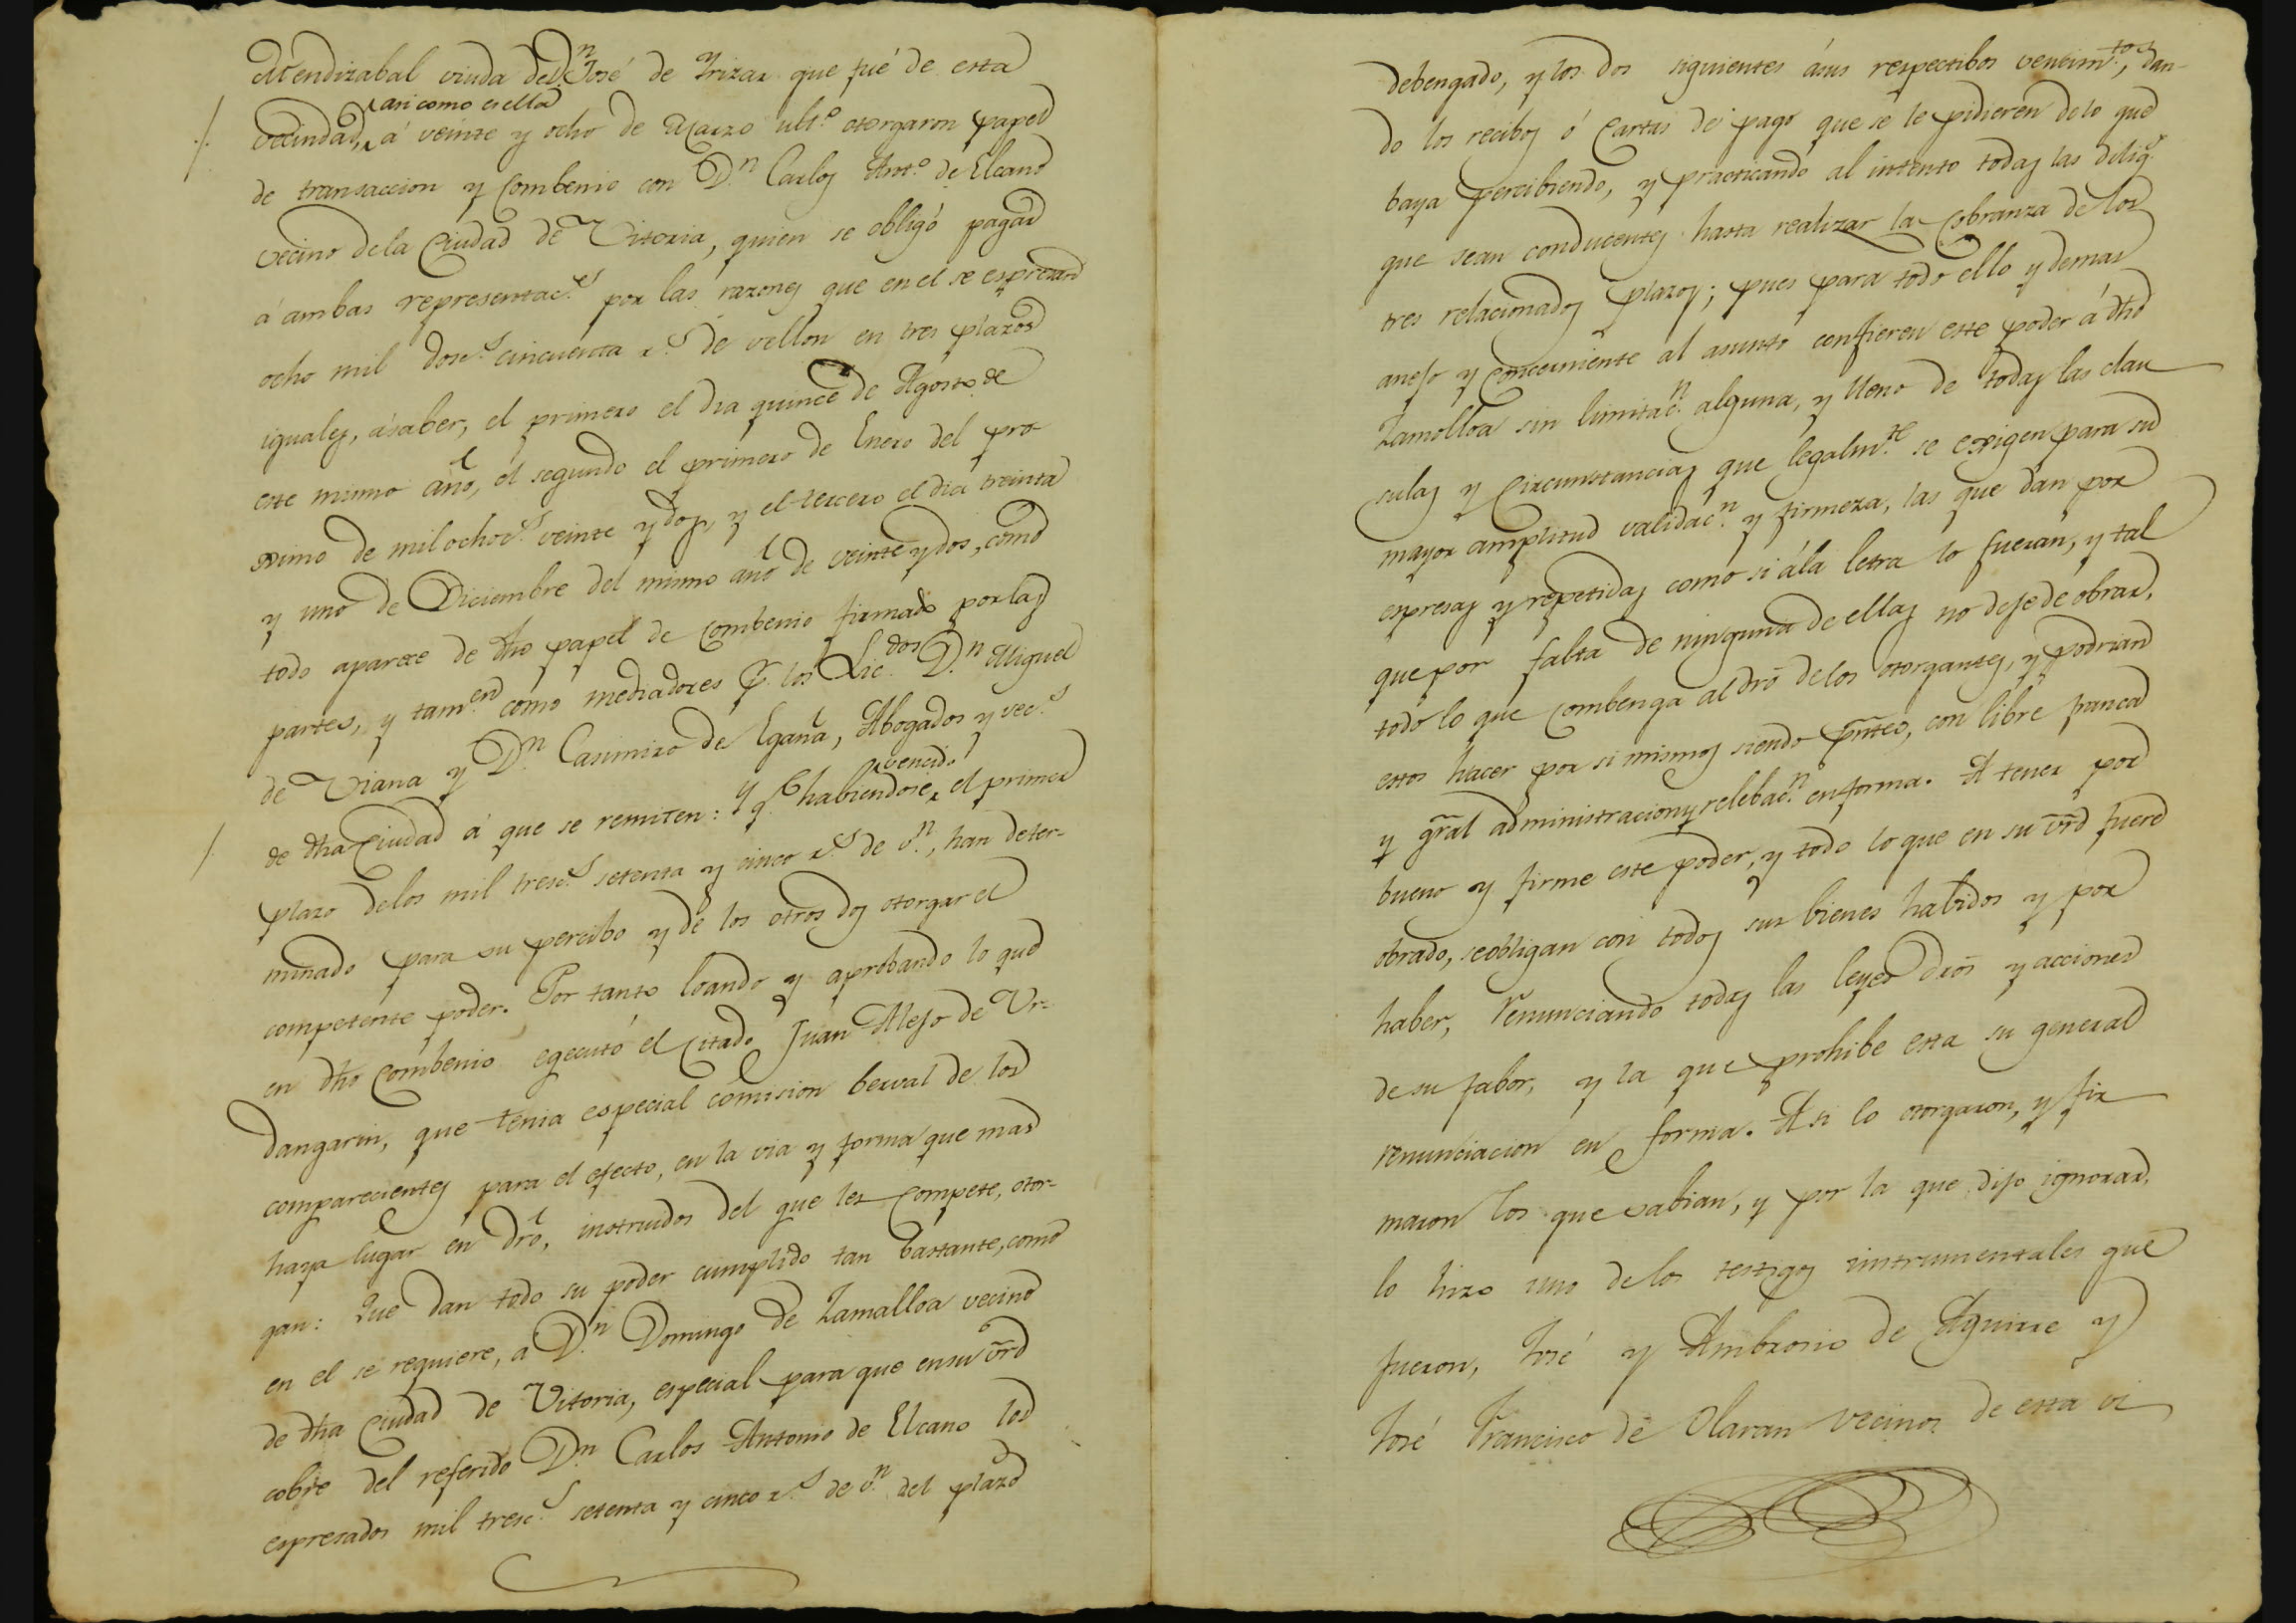 Mendizabal viuda de D.n José de Yrizar que fué de esta
asi como es ella
vecindad, á veinte y ocho de Marzo ult.o otorgaron papel
de transaccion y combenio con D.n Carlos Ant.o de Elcano
vecino de la Ciudad de Vitoria, quien se obligó pagar
á ambas representac.es por las razones que en el se espresan
ocho mil dosc.s cincuenta r.s de vellon en tres plazos
iguales, ásaber, el primero el dia quince de Agosto de
este mismo año, el segundo el primero de Enero del pro
ximo de mil ochoc.s veinte y dos, y el tercero el dia treinta
y uno de Diciembre del mismo año de veinte y dos, como
todo aparece de dho papel de combenio firmado por las
partes, y tam.en como mediadores p.r los Lic.dos D.n Miguel
de Viana y D.n Casimiro de Egaña, Abogados y vec.s
vencido
de dha Ciudad á que se remiten: Y q.e habiendose el primer
plazo delos mil tresc.s setenta y cinco r.s de v.n, han deter-
minado para su percibo y de los otros dos otorgar el
competente poder. Por tanto loando y aprobando lo que
en dho combenio egecutó el citado Juan Alejo de Ur-
dangarin, que tenia especial comision berval de los
comparecientes para el efecto, en la via y forma que mas
haya lugar en dro, instruidos del que les compete, otor-
gan: Que dan todo su poder cumplido tan bastante, como
en el se requiere, a D.n Domingo de Lamalloa vecino
de dha Ciudad de Vitoria, especial para que ensu vrd
cobre del referido D.n Carlos Antonio de Elcano los
espresados mil tresc.s setenta y cinco r.s de v.n del plazo
debengado, y los dos siguientes ásus respectibos vencim.tos, dan-
do los recibos ó cartas de pago que se le pidieren delo que
baya percibiendo, y practicando al intento todas las dilig.s
que sean conducentes hasta realizar la cobranza de los
tres relacionados plazos; pues para todo ello y demas
anejo y concerniente al asunto confieren este poder á dho
Lamolloa sin limitac.n alguna, y lleno de todas las clau
sulas y circunstancias que legalm.te se exigen para su
mayor amplitud validac.n y firmeza, las que dan por
espresas y repetidas como si ála letra lo fueran, y tal
que por falta de ninguna de ellas no deje de obrar,
todo lo que combenga al dro delos otorgantes, y podrian
estos hacer por si mismos siendo pntes, con libre franca
y gral administracion y relebac.n en forma. A tener por
bueno y firme este poder, y todo lo que en su vrd fuere
obrado, se obligan con todos sus bienes habidos y por
haber, renunciando todas las leyes dros y acciones
de su fabor, y la que prohibe esta su general
renunciacion en forma. Asi lo otorgaron, y fir
maron los que sabian, y por la que dijo ignorar,
lo hizo uno delos testigos instrumentales que
fueron, José y Ambrosio de Aguirre y
José Francisco de Olaran vecinos de esta vi